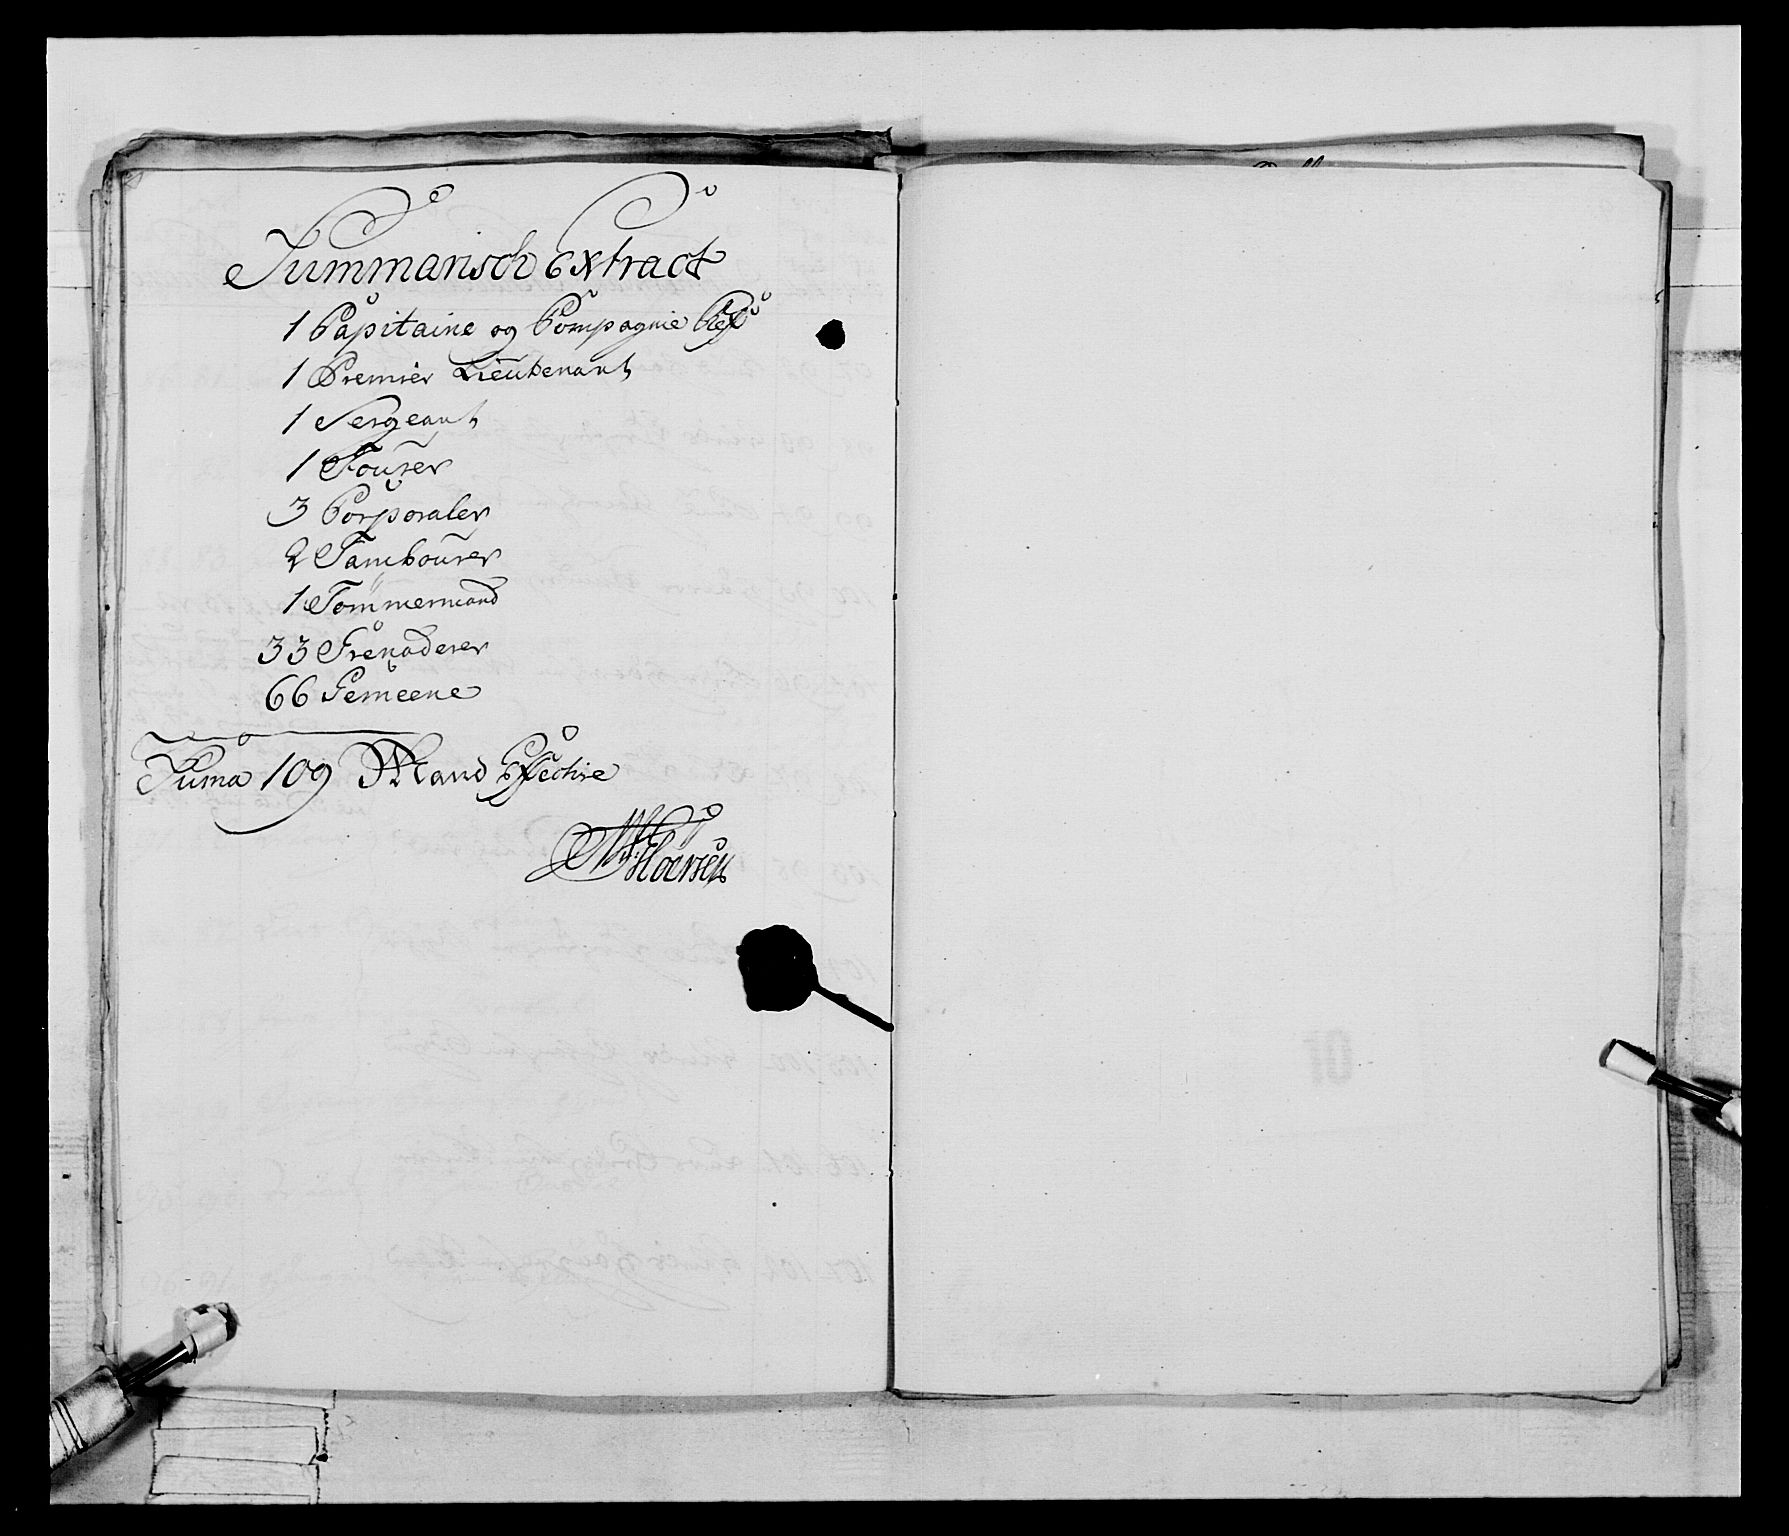 Summarisch Extract
1 Capitaine og Compagnie Chef
1 Premier Lieutenant
1 Sergeant
1 Fourer
3 Corporaler
2 Tambourer
1 Tømmermand
33 Grenaderer
66 Gemeene
Suma 109 Mand Effective